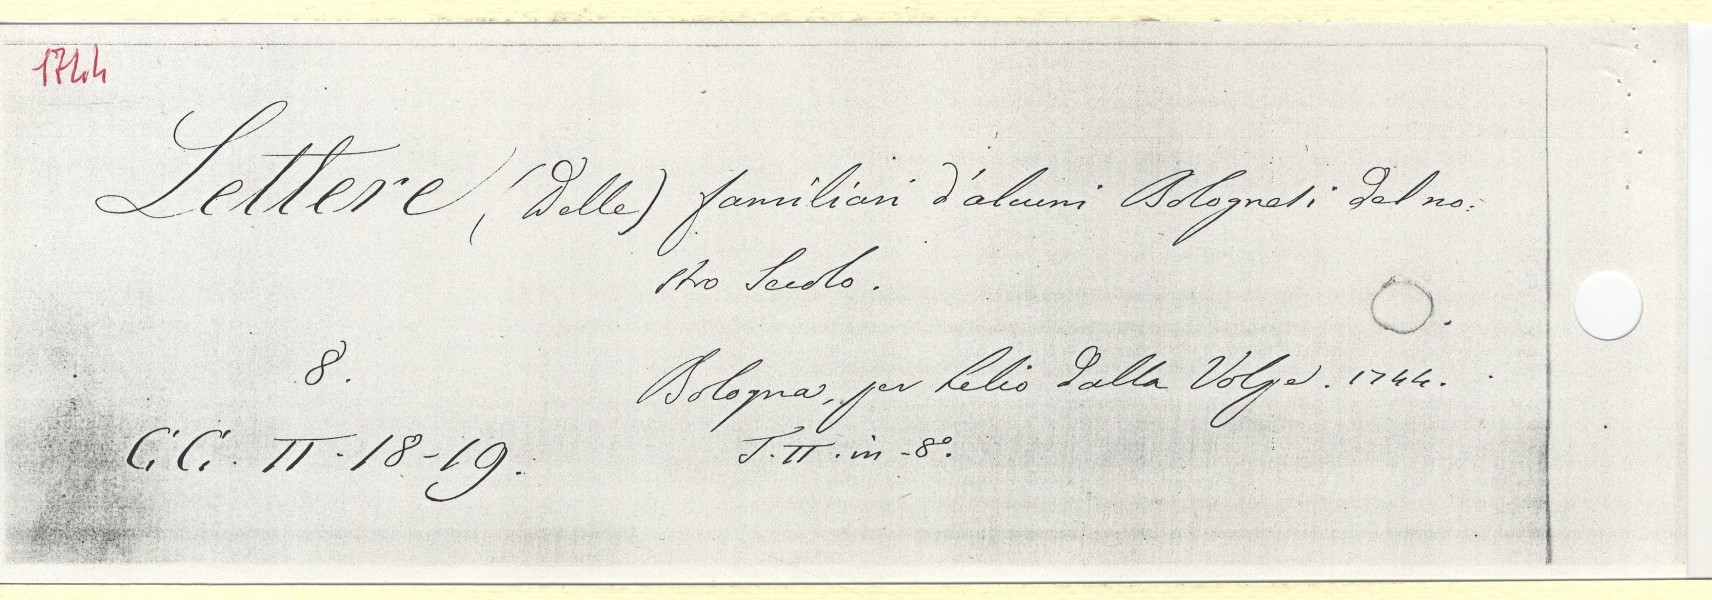 1744
Lettere (Delle) familiari d'alcuni Bolognesi del no:
stro Secolo.
8.
Bologna, per Lelio dalla Volpe. 1744.
CC. II. 18-19.
T. II. in-8°.